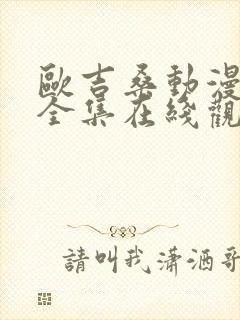 歐吉桑動漫
全集在綫觀
請叫我瀟洒哥